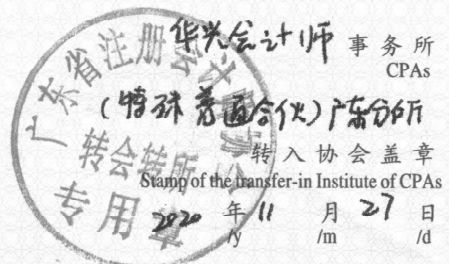 华兴会计师事务所
CPAs
(特殊普通合伙)广东分所
转入协会盖章
Stamp of the transfer-in Institute of CPAs
2020年11月27日
/y /m /d
广东省注册会计师协会
转会转所
专用章